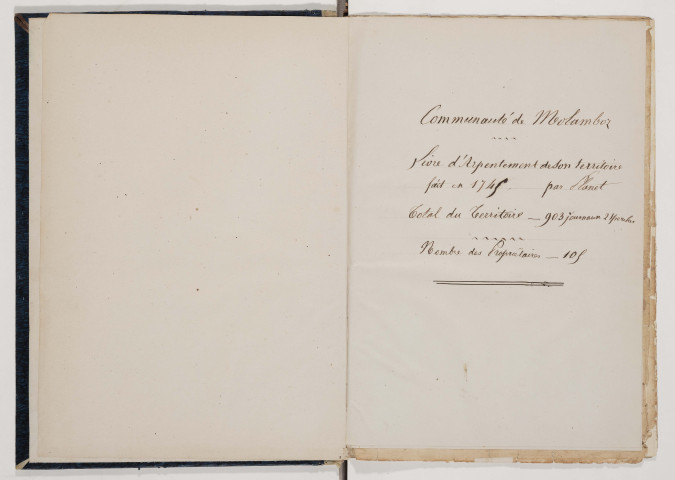 Communauté de Molamboz
Livre d'Arpentement de son territoire
fait en 1745 — par Planet
Total du Territoire — 903 journaux 24 perches
Nombre des Propriétaires — 105